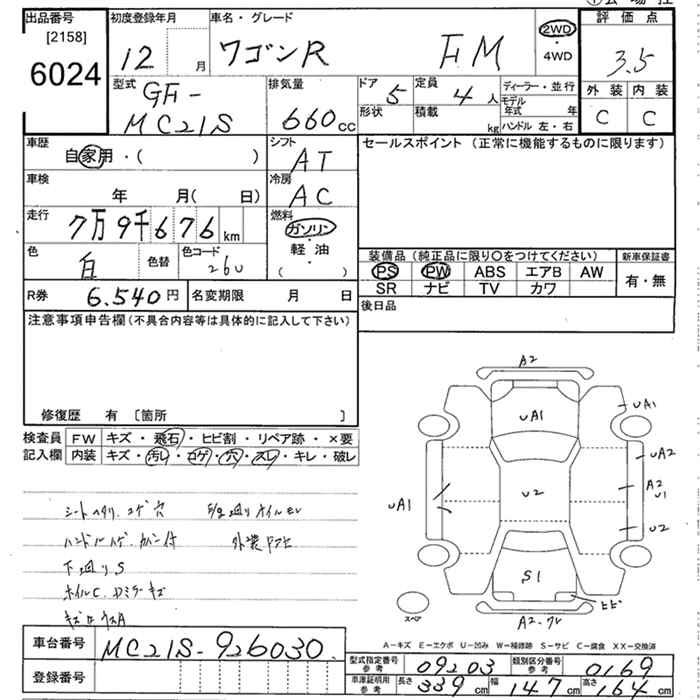 出品番号 [2158] 6024
初度登録年月 12 月
車名・グレード ワゴンR FM
2WD・4WD
評価点 3.5
外装 C 内装 C
型式 GF-MC21S
排気量 660cc
ドア 5 定員 4人
形状 積載 kg
ディーラー・並行
モデル年式 年
ハンドル 左・右
車歴 自家用・( )
シフト AT
セールスポイント (正常に機能するものに限ります)
車検 年 月( 日)
冷房 AC
走行 7万9千676km
燃料 ガソリン・軽油 ( )
色 白 色替 色コード 26U
装備品 (純正品に限り○をつけてください)
PS PW ABS エアB AW
SR ナビ TV カワ
新車保証書 有・無
R券 6.540円 名変期限 月 日
後日品
注意事項申告欄(不具合内容等は具体的に記入して下さい)
修復歴 有 [箇所 ]
検査員記入欄
FW キズ・飛石・ヒビ割・リペア跡・×要
内装 キズ・汚レ・コゲ・穴・スレ・キレ・破レ
シートヘタリ、コゲ穴
下廻りS
A2
UA1
UA1
UA2
A2
U1
U2
UA1
U2
S1
ヒビ
スペア
A2-ワレ
A-キズ E-エクボ U-凹み W-補修跡 S-サビ C-腐食 XX-交換済
車台番号 MC21S-926030
登録番号
型式指定番号 参考 09203 類別区分番号 参考 0169
車庫証明用 参考 長さ 339cm 幅 147cm 高さ 164cm